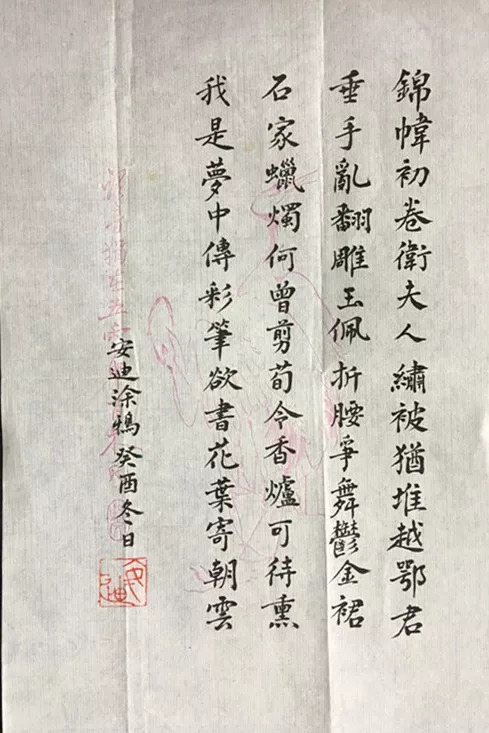 錦幃初卷衛夫人繡被猶堆越鄂君
垂手亂翻雕玉佩折腰爭舞鬱金裙
石家蠟燭何曾剪荀令香爐可待熏
我是夢中傳彩筆欲書花葉寄朝雲
安迪涂鴉癸酉冬日
安迪